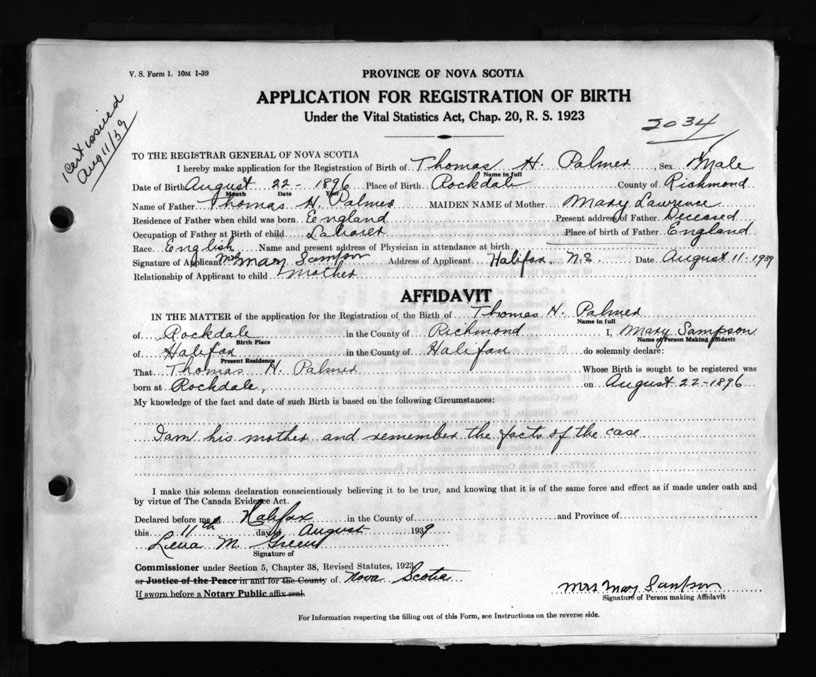 V. S. Form 1. 10M 1-39
PROVINCE OF NOVA SCOTIA
APPLICATION FOR REGISTRATION OF BIRTH
Under the Vital Statistics Act, Chap. 20, R. S. 1923
Cert issued
Aug 11/39
2034
TO THE REGISTRAR GENERAL OF NOVA SCOTIA
I hereby make application for the Registration of Birth of Thomas H. Palmer, Sex Male
Name in full
Date of Birth August 22 - 1896 Place of Birth Rockdale County of Richmond
Month Date Year
Name of Father Thomas H. Palmer MAIDEN NAME of Mother Mary Lawrence
Residence of Father when child was born England Present address of Father Deceased
Occupation of Father at Birth of child Laborer Place of birth of Father England
Race English Name and present address of Physician in attendance at birth
Signature of Applicant Mrs Mary Sampson Address of Applicant Halifax, N.S Date August 11 - 1939
Relationship of Applicant to child mother
AFFIDAVIT
IN THE MATTER of the application for the Registration of the Birth of Thomas H. Palmer
Name in full
of Rockdale in the County of Richmond I, Mary Sampson
Birth Place Name of Person Making Affidavit
of Halifax in the County of Halifax do solemnly declare:
Present Residence
That Thomas H. Palmer Whose Birth is sought to be registered was
born at Rockdale, on August 22 - 1896
My knowledge of the fact and date of such Birth is based on the following Circumstances:
I am his mother and remember the facts of the case
I make this solemn declaration conscientiously believing it to be true, and knowing that it is of the same force and effect as if made under oath and
by virtue of The Canada Evidence Act.
Declared before me at Halifax in the County of and Province of
this 11th day of August 1939
Lena M. Green
Signature of
Commissioner under Section 5, Chapter 38, Revised Statutes, 1923
or Justice of the Peace in and for the County of Nova Scotia
If sworn before a Notary Public affix seal.
Mrs Mary Sampson
Signature of Person making Affidavit
For Information respecting the filling out of this Form, see Instructions on the reverse side.